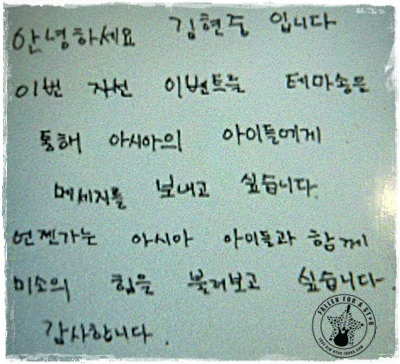 안녕하세요 김현중 입니다
이번 자선 이벤트를 테마송을
통해 아시아의 아이들에게
메세지를 보내고 싶습니다.
언젠가는 아시아 아이들과 함께
미소의 힘을 불러보고 싶습니다.
감사합니다.
FALLEN FOR A STAR